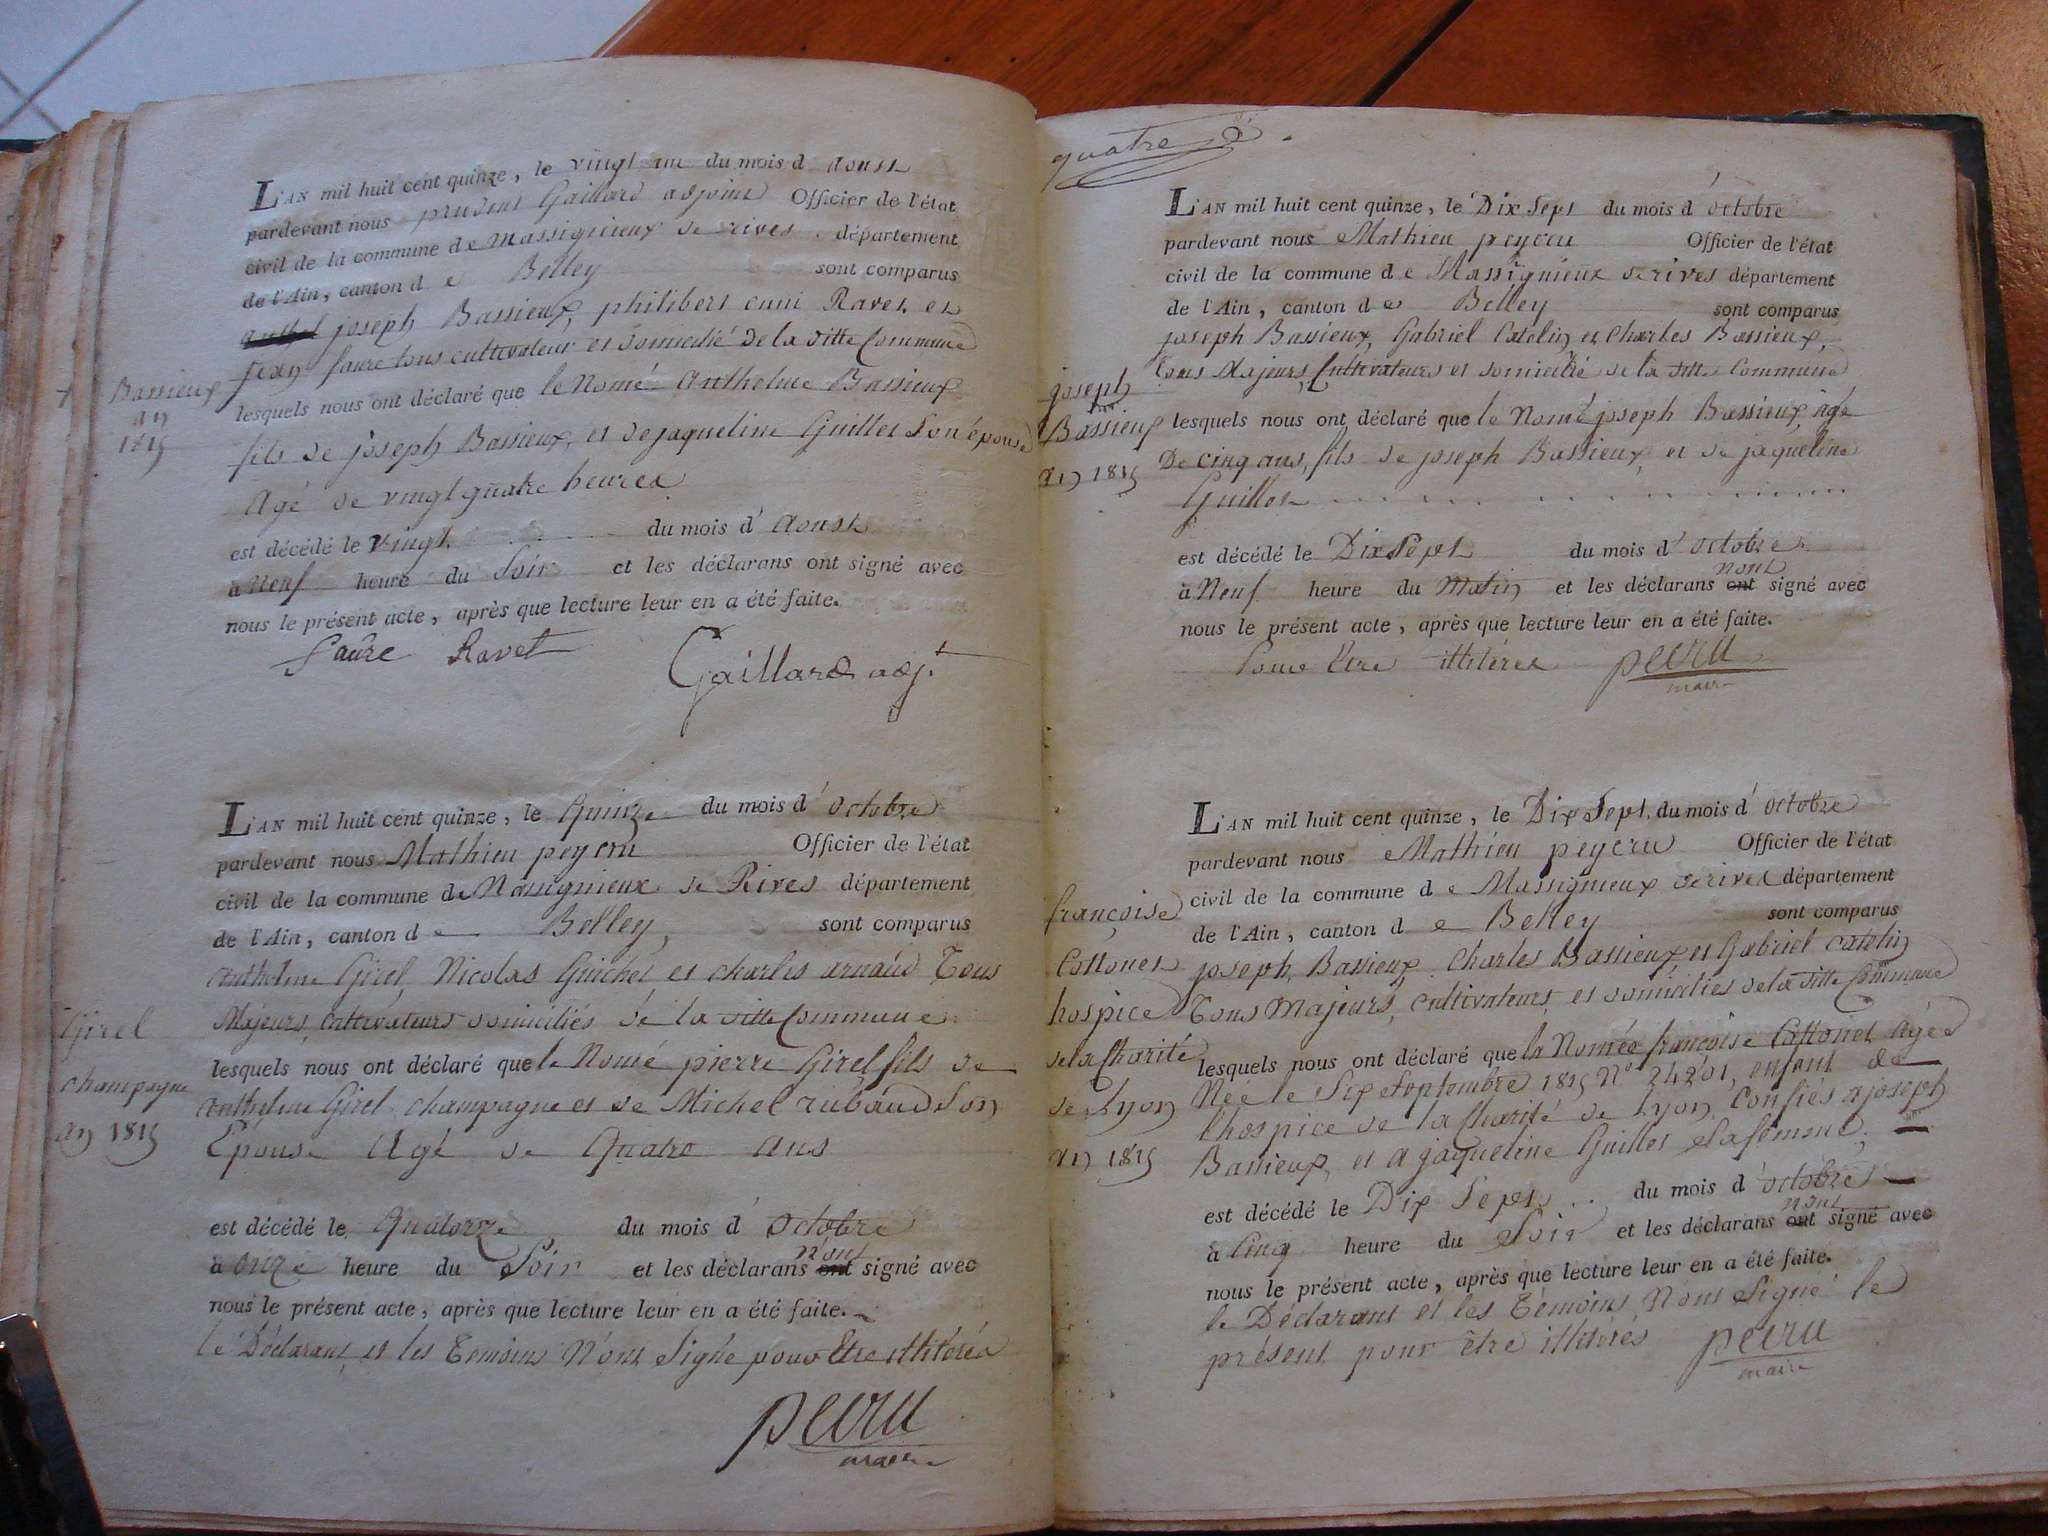 Bassieux
an
1815
L'AN mil huit cent quinze, le vingt un du mois d'aoust
pardevant nous prudent Gaillard adjoint Officier de l'état
civil de la commune de Massignieux de rives département
de l'Ain, canton de Belley sont comparus
joseph Bassieux, philibert Ravet et
jean faure tous cultivateur et domicilié de la ditte Commune
lesquels nous ont déclaré que le Nomé Anthelme Bassieux
fils de joseph Bassieux, et de jaqueline Guillet Son épouse
Agé de vingt quatre heures
est décédé le vingt du mois d'aoust
à Neuf heure du Soir et les déclarans ont signé avec
nous le présent acte, après que lecture leur en a été faite.
faure Ravet
Gaillard adj.t
Girel
champagne
an 1815
L'AN mil huit cent quinze, le Quinze du mois d'octobre
pardevant nous Mathieu peycru Officier de l'état
civil de la commune de Massignieux de Rives département
de l'Ain, canton de Belley, sont comparus
anthelme Girel, Nicolas Guichet et charles arnaud Tous
Majeurs, cultivateurs domiciliés de la ditte Commune
lesquels nous ont déclaré que le Nomé pierre Girel fils de
anthelme Girel champagne et de Michel rubaud Son
Epouse Agé de Quatre ans
est décédé le Quatorze du mois d'octobre
à onze heure du Soir et les déclarans n'ont ont signé avec
nous le présent acte, après que lecture leur en a été faite.
le Déclarant et les Témoins N'ont Signé pour Etre illitérés
pecru
maire
quatre
joseph
Bassieux
an 1815
L'AN mil huit cent quinze, le Dix Sept du mois d'octobre
pardevant nous Mathieu peycru Officier de l'état
civil de la commune de Massignieux de rives département
de l'Ain, canton de Belley sont comparus
joseph Bassieux, Gabriel Catelin et Charles Bassieux,
Tous Majeurs, Cultivateurs et domicilié de la ditte Commune
lesquels nous ont déclaré que le Nomé joseph Bassieux, agé
De cinq ans, fils de joseph Bassieux, et de jaqueline
Guillet
est décédé le Dix Sept du mois d'octobre
à Neuf heure du Matin et les déclarans n'ont ont signé avec
nous le présent acte, après que lecture leur en a été faite.
Pour Etre illitérés pecru
maire
françoise
Cottonet
hospice
de la Charité
de Lyon
an 1815
L'AN mil huit cent quinze, le Dix Sept du mois d'octobre
pardevant nous Mathieu peycru Officier de l'état
civil de la commune de Massignieux de rives département
de l'Ain, canton de Belley sont comparus
joseph Bassieux Charles Bassieux et Gabriel catelin
Tous Majeurs, cultivateurs et domiciliés de la ditte Commune
lesquels nous ont déclaré que la Nomée françoise Cottonet Agée
Née le Sept Septembre 1815 N° 24201, enfant de
l'hospice de la Charité de Lyon, confiés a joseph
Bassieux, et a jaqueline Guillet Sa femme,
est décédé le Dix Sept du mois d'octobre
à Cinq heure du Soir et les déclarans n'ont ont signé avec
nous le présent acte, après que lecture leur en a été faite.
le Déclarant et les Témoins N'ont Signé le
présent pour être illitérés pecru
maire